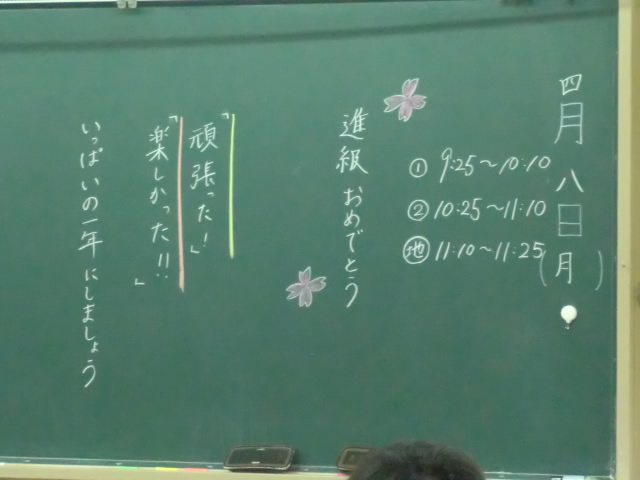 四月八日(月)
① 9:25～10:10
② 10:25～11:10
地 11:10～11:25
進級おめでとう
「頑張った!」
「楽しかった!!」
いっぱいの一年にしましょう